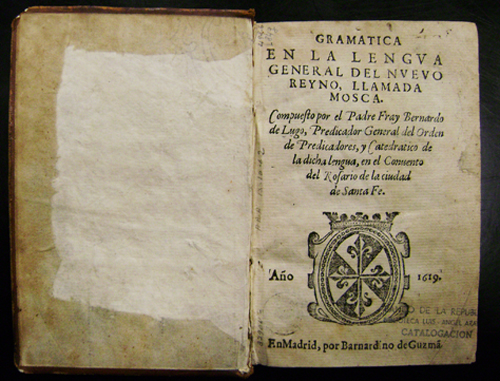 GRAMATICA
EN LA LENGVA
GENERAL DEL NVEVO
REYNO, LLAMADA
MOSCA.
Compuesto por el Padre Fray Bernardo
de Lugo, Predicador General del Orden
de Predicadores, y Catedratico de
la dicha lengua, en el Conuento
del Rosario de la ciudad
de Santa Fe.
Año 1619.
DE LA REPUB
CATALOGACION
En Madrid, por Barnardino de Guzmã